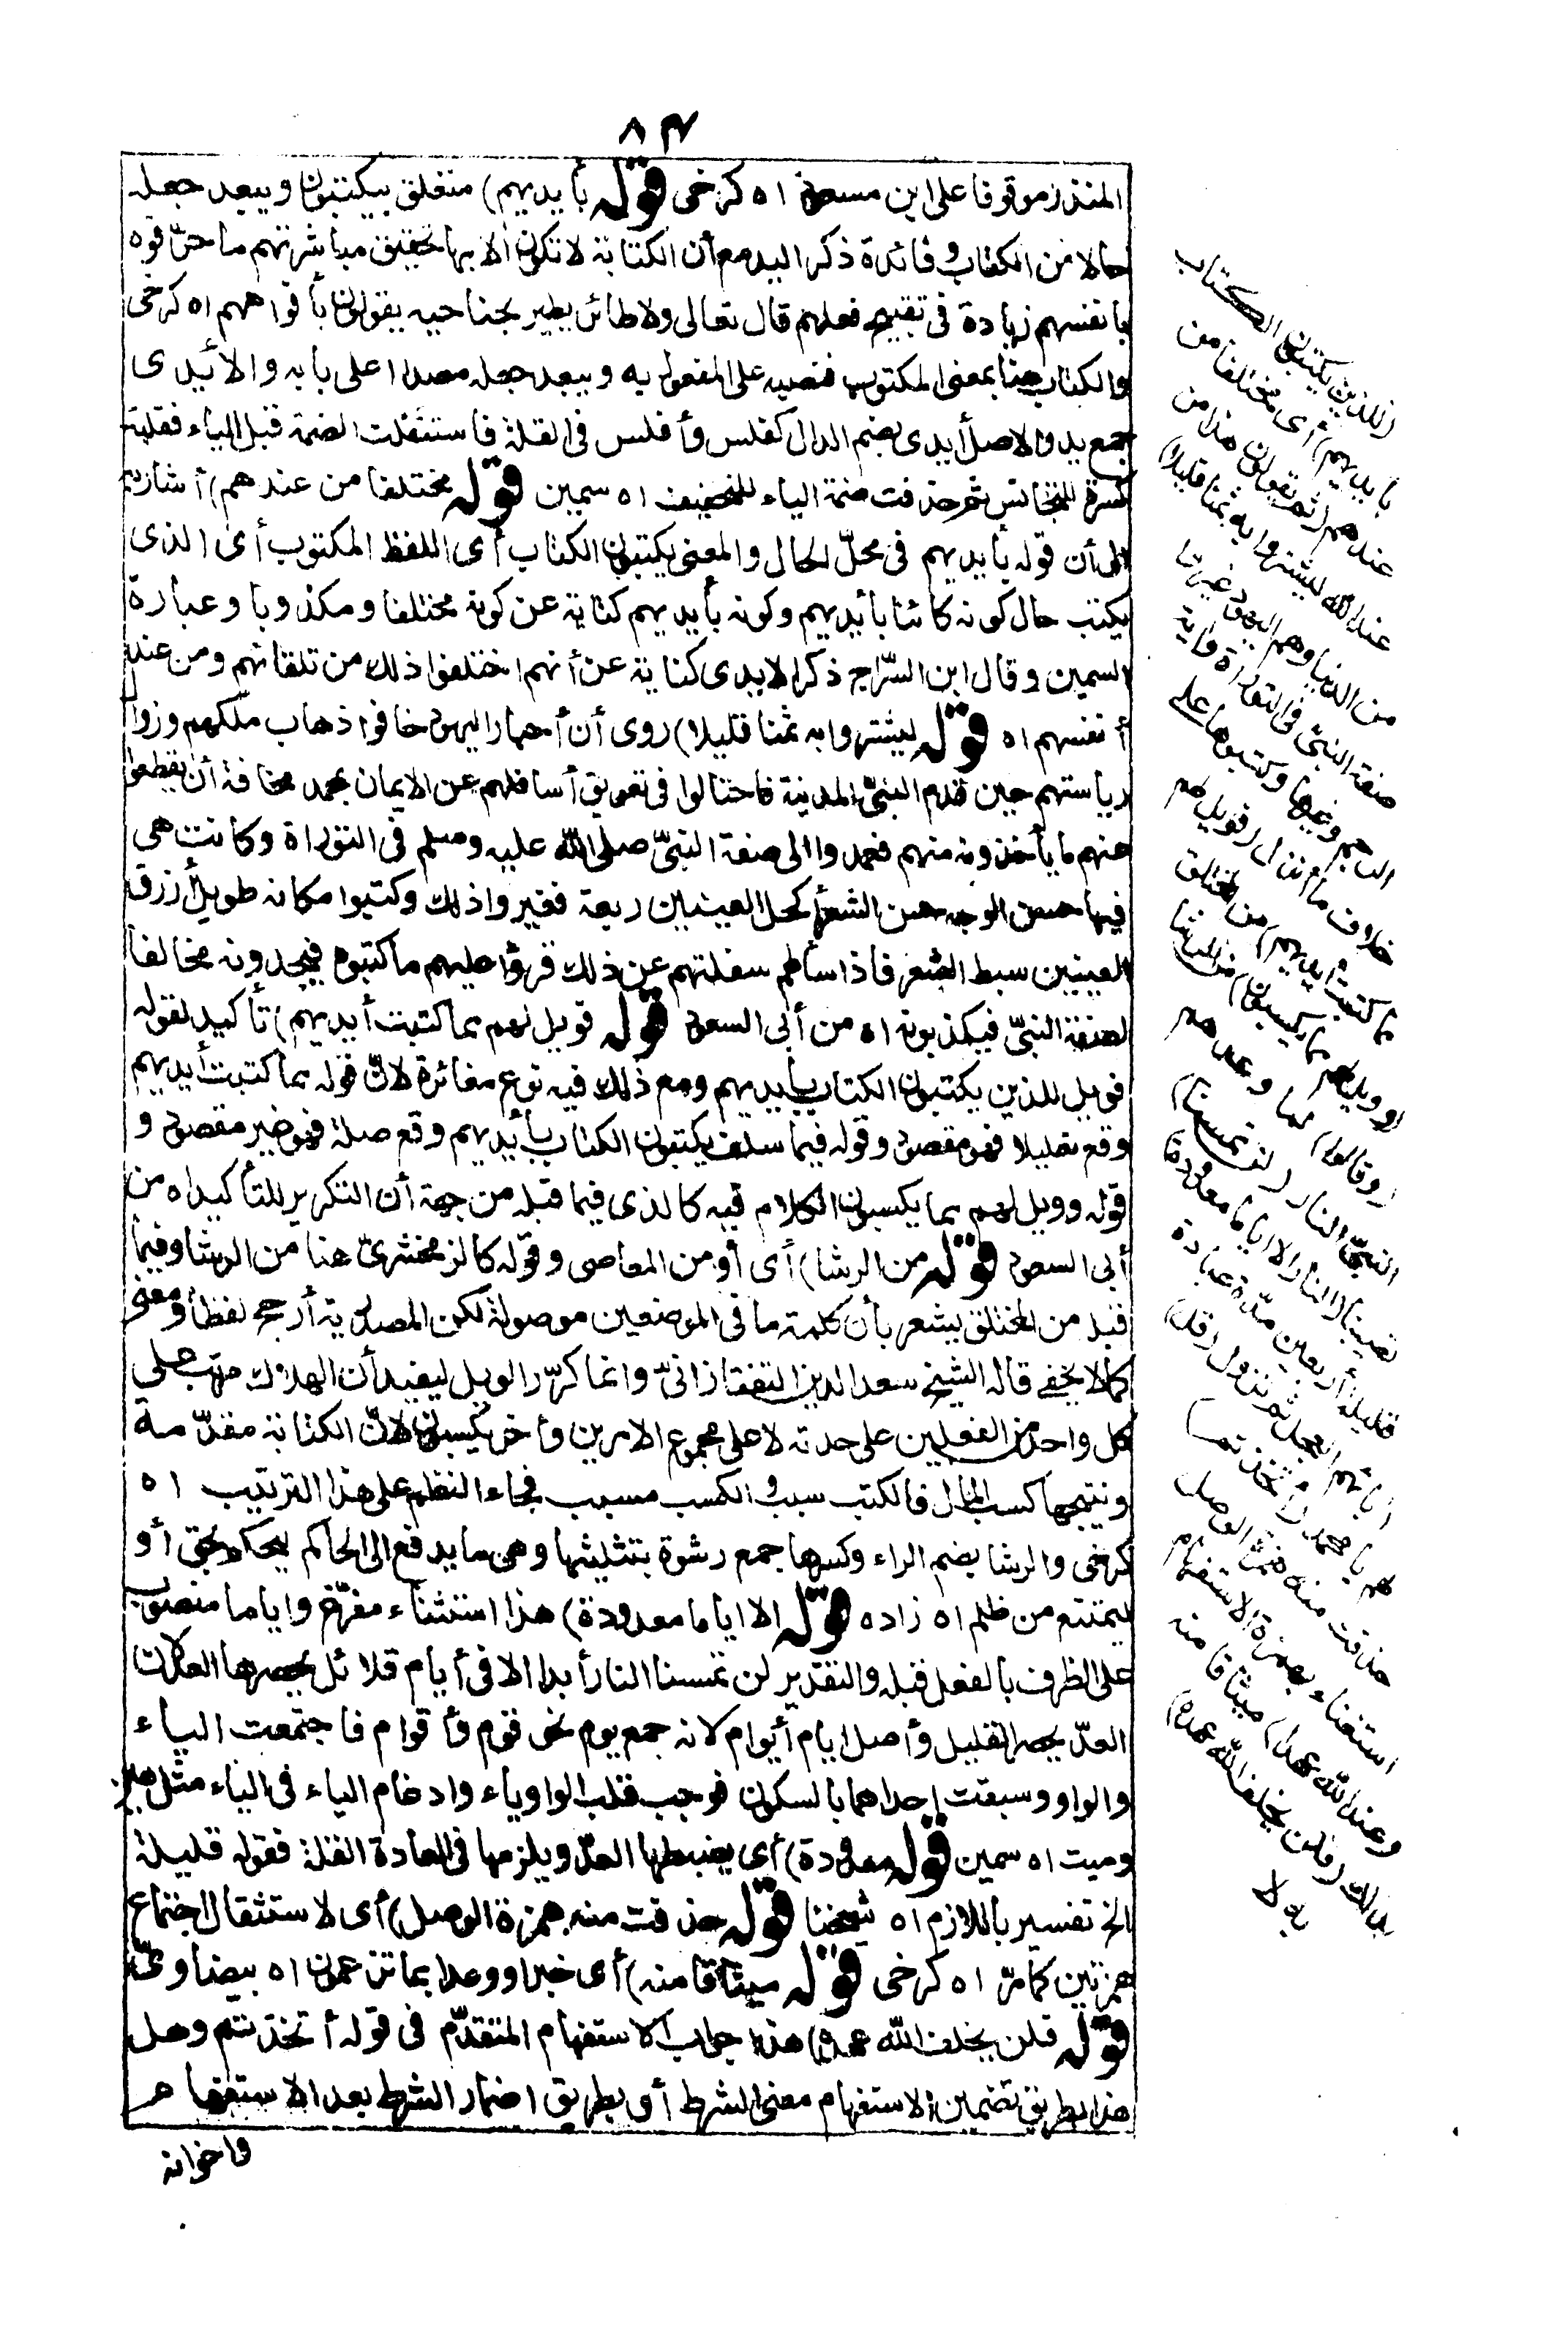 ٨٣
المنذر موقوفا على ابن مسعود اه كرخى قوله بأيديهم) متعلق بيكتبون ويبعد جعله
حالا من الكتاب وفائدة ذكر اليد مع أن الكتابة لا تكون الا بها تحقيق مباشرتهم ما حرّفوه
بأنفسهم زيادة فى تقبيح فعلهم قال تعالى ولا طائر يطير بجناحيه يقولون بأفواههم اه كرخى
والكتاب هنا بمعنى المكتوب فنصبه على المفعول به ويبعد جعله مصدرا على بابه والأيدى
جمع يد والاصل أيدى بضم الدال كفلس وأفلس فى القلة فاستثقلت الضمة قبل الياء فقلبت
كسرة للتجانس ثم حذفت ضمة الياء للتخفيف اه سمين قوله مختلقا من عندهم) أشار به
الى أن قوله بأيديهم فى محلّ الحال والمعنى يكتبون الكتاب أى اللفظ المكتوب أى الذى
يكتب حال كونه كائنا بأيديهم وكونه بأيديهم كناية عن كونه مختلقا ومكذوبا وعبارة
السمين وقال ابن السّراج ذكر الايدى كناية عن أنهم اختلقوا ذلك من تلقائهم ومن عند
أنفسهم اه قوله ليشتروا به ثمنا قليلا) روى أن أحبار اليهود خافوا ذهاب ملكهم وزوال
رياستهم حين قدم النبىّ المدينة فاحتالوا فى تعويق أسافلهم عن الايمان بمحمد مخافة أن يقطعوا
عنهم ما يأخذونه منهم فعمدوا الى صفة النبىّ صلى الله عليه وسلم فى التوراة وكانت هى
فيها حسن الوجه حسن الشعر أكحل العينين ربعة فغيروا ذلك وكتبوا مكانه طويل أزرق
العينين سبط الشعر فاذا سألهم سفلتهم عن ذلك قرؤا عليهم ما كتبوه فيجدونه مخالفا
لصفة النبىّ فيكذبونه اه من أبى السعود قوله فويل لهم مما كتبت أيديهم) تأكيد لقوله
فويل للذين يكتبون الكتاب بأيديهم ومع ذلك فيه نوع مغائرة لانّ قوله مما كتبت أيديهم
وقع تعليلا فهو مقصود وقوله فيما سلف يكتبون الكتاب بأيديهم وقع صلة فهو غير مقصود و
قوله وويل لهم مما يكسبون الكلام فيه كالذى فيما قبله من جهة أن التكرير للتأكيد اه من
أبى السعود قوله من الرشا) أى أو من المعاصى وقوله كالزمخشرىّ هنا من الرشا وفيما
قبله من المختلق يشعر بأن كلمة ما فى الموضعين موصولة لكن المصدرية أرجح لفظا ومعنى
كما لا يخفى قاله الشيخ سعد الدين التفتازانىّ وانما كرّر الويل ليفيد أن الهلاك مرتب على
كل واحد من الفعلين على حدته لا على مجموع الامرين وأخر يكسبون لانّ الكتابة مقدّمة
ونتيجها كسب المال فالكتب سبب والكسب مسبب فجاء النظم على هذا الترتيب اه
كرخى والرشا بضم الراء وكسرها جمع رشوة بتثليثها وهى ما يدفع الى الحاكم ليحكم بحق أو
ليمتنع من ظلم اه زاده قوله الا اياما معدودة) هذا استثناء مفرّغ واياما منصوب
على الظرف بالفعل قبله والتقدير لن تمسنا النار أبدا الا فى أيام قلائل يحصرها العدّ لان
العدّ يحصر القليل وأصل ايام أيوام لانه جمع يوم نحو قوم وأقوام فاجتمعت الياء
والواو وسبقت احداهما بالسكون فوجب قلب الواو ياء وادغام الياء فى الياء مثل هين
وميت اه سمين قوله معدودة) أى يضبطها العدّ ويلزمها فى العادة القلة فقوله قليلة
الخ تفسير باللازم اه شيخنا قوله حذفت منه همزة الوصل) أى لاستثقال اجتماع
همزتين كما مرّ اه كرخى قوله ميثاقا منه) أى خبرا ووعدا بما تزعمون اه بيضاوىّ
قوله فلن يخلف الله عهده) هذا جواب الاستفهام المتقدّم فى قوله أتخذتم وهل
هذا بطريق تضمين الاستفهام معنى الشرط أو بطريق اضمار الشرط بعد الاستفهام
واخواته
(للذين يكتبون الكتاب
بأيديهم) أى مختلقا من
عندهم (ثم يقولون هذا من
عند الله ليشتروا به ثمنا قليلا)
من الدنيا وهم اليهود غيروا
صفة النبىّ فى التوراة وآية
الرجم وغيرها وكتبوها على
خلاف ما أنزل (فويل لهم
مما كتبت أيديهم) من المختلق
(وويل لهم مما يكسبون) من الرشا
(وقالوا) لما وعدهم
النبىّ النار (لن تمسنا)
تصيبنا (النار الا اياما معدودة)
قليلة أربعين مدّة عبادة
آبائهم العجل ثم تزول (قل)
لهم يا محمد (أتخذتم)
حذفت منه همزة الوصل
استغناء بهمزة الاستفهام
(عند الله عهدا) ميثاقا منه
بذلك (فلن يخلف الله عهده)
به لا